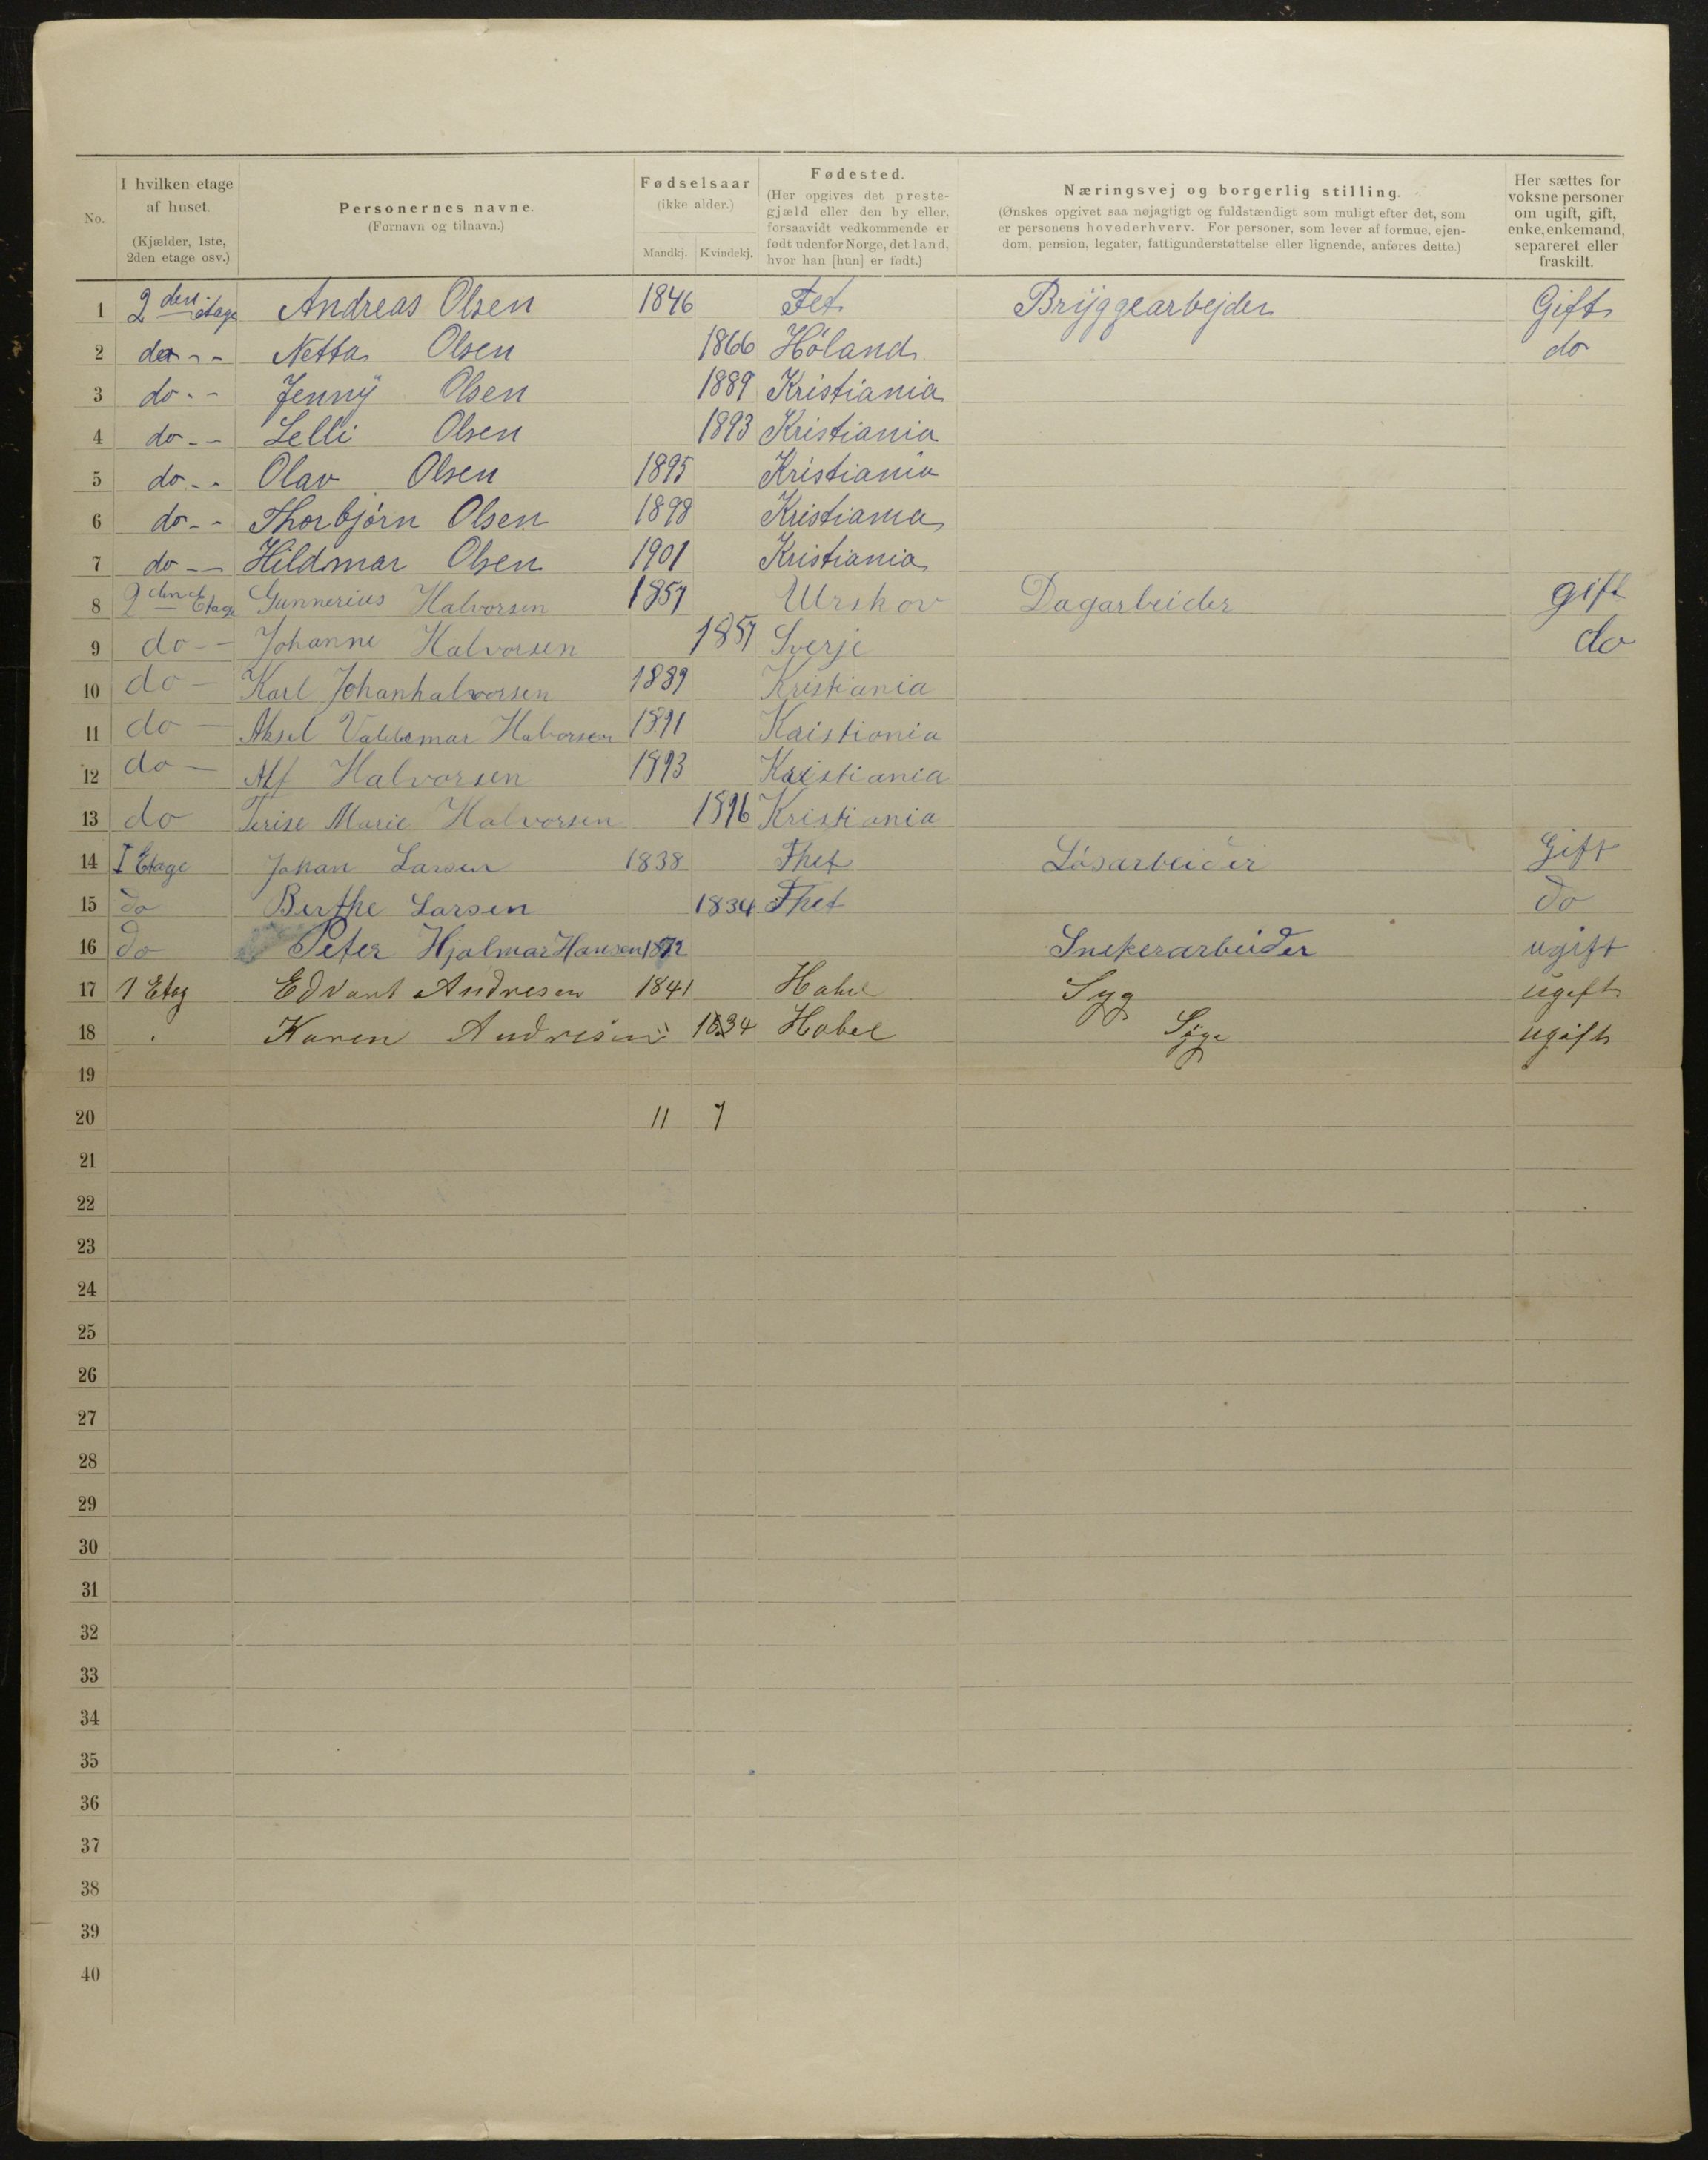 No. I hvilken etage af huset. (Kjælder, 1ste, 2den etage osv.) Personernes navne. (Fornavn og tilnavn.) Fødselsaar (ikke alder.) Mandkj. Kvindekj. Fødested. (Her opgives det prestegjæld eller den by eller, forsaavidt vedkommende er født udenfor Norge, det land, hvor han [hun] er født.) Næringsvej og borgerlig stilling. (Ønskes opgivet saa nøjagtigt og fuldstændigt som muligt efter det, som er personens hovederhverv. For personer, som lever af formue, ejendom, pension, legater, fattigunderstøttelse eller lignende, anføres dette.) Her sættes for voksne personer om ugift, gift, enke, enkemand, separeret eller fraskilt.
1 2den etage Andreas Olsen 1846 Fet Bryggearbejder Gift
2 do - - Netta Olsen 1866 Høland do
3 do - - Jenny Olsen 1889 Kristiania
4 do - - Lelli Olsen 1893 Kristiania
5 do - - Olav Olsen 1895 Kristiania
6 do - - Thorbjørn Olsen 1898 Kristiania
7 do - - Hildmar Olsen 1901 Kristiania
8 2den Etage Gunnerius Halvorsen 1857 Urskov Dagarbeider gift
9 do - - Johanne Halvorsen 1857 Sverje do
10 do - Karl Johanhalvorsen 1889 Kristiania
11 do - Aksel Valdemar Halvorsen 1891 Kristiania
12 do - Alf Halvorsen 1893 Kristiania
13 do Terise Marie Halvorsen 1896 Kristiania
14 I Etage Johan Larsen 1838 Fhet Løsarbeider Gift
15 do Berthe Larsen 1834 Fhet do
16 do Peter Hjalmar Hansen 1872 Snekerarbeider ugift
17 1 Etag Edvart Andresen 1841 Habel Syg ugift
18 Karen Andresen 1834 Habel Syge ugift
19
20 11 7
21
22
23
24
25
26
27
28
29
30
31
32
33
34
35
36
37
38
39
40